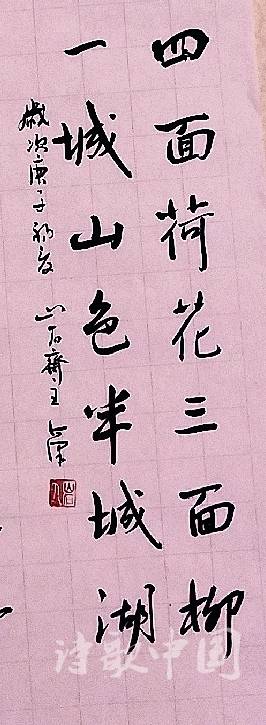 四面荷花三面柳
一城山色半城湖
歲次庚子初夏 山石齋主
诗歌中国